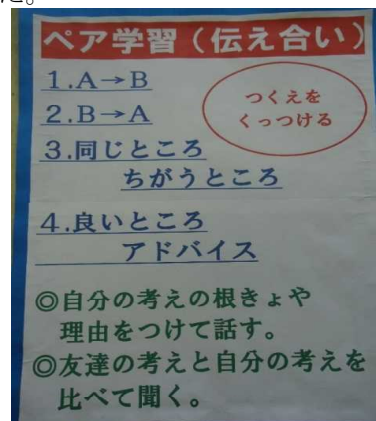 た。
ペア学習（伝え合い）
1.A→B
2.B→A
つくえを
くっつける
3.同じところ
ちがうところ
4.良いところ
アドバイス
◎自分の考えの根きょや
理由をつけて話す。
◎友達の考えと自分の考えを
比べて聞く。